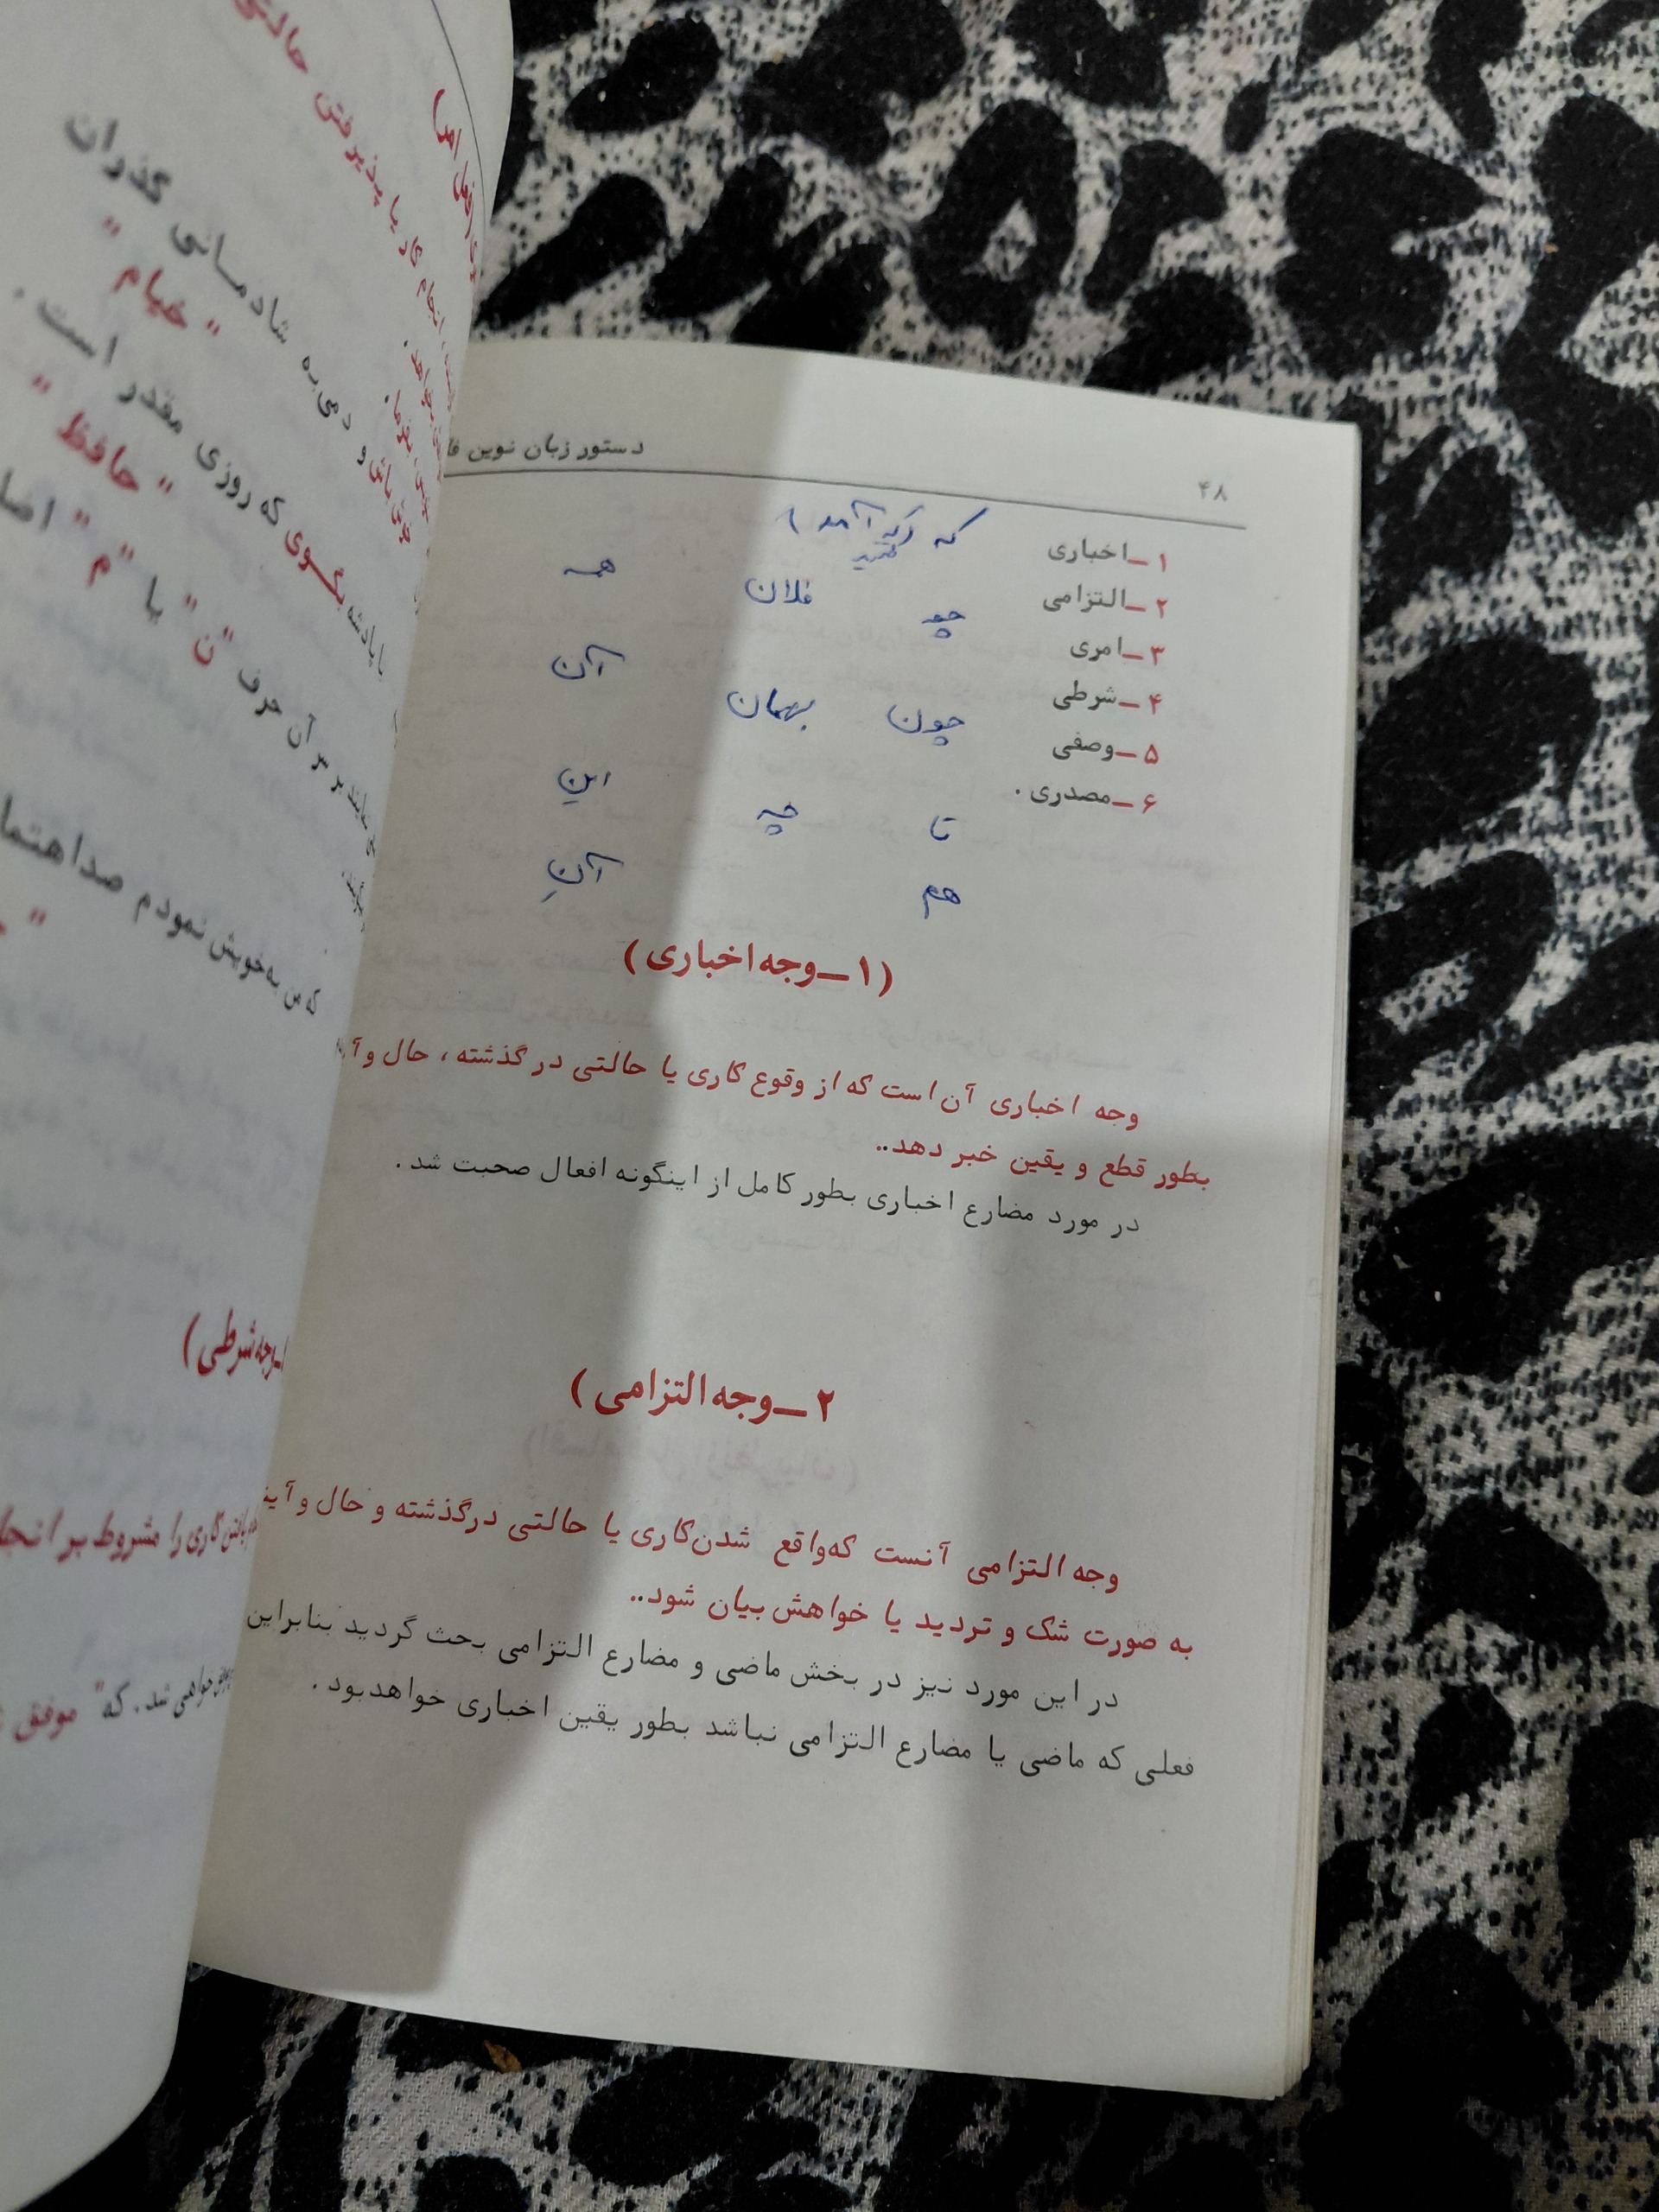 ۴۸
دستور زبان نوین
۱ـ اخباری
۲ـ التزامی
۳ـ امری
۴ـ شرطی
۵ـ وصفی
۶ـ مصدری .
که
چو فلان همه
چون بهمان آن
تا چه این
هم آنِ
(۱ـ وجه اخباری)
وجه اخباری آن است که از وقوع کاری یا حالتی در گذشته ، حال و
بطور قطع و یقین خبر دهد..
در مورد مضارع اخباری بطور کامل از اینگونه افعال صحبت شد .
۲ـ وجه التزامی)
وجه التزامی آنست که واقع شدن کاری یا حالتی در گذشته و حال و
به صورت شک و تردید یا خواهش بیان شود..
در این مورد نیز در بخش ماضی و مضارع التزامی بحث گردید بنابراین
فعلی که ماضی یا مضارع التزامی نباشد بطور یقین اخباری خواهد بود .
فعل امر)
انجام کار یا پذیرفتن حالتی
خوش باش و دمی به شادمانی گذران
" خیام "
بگوی که روزی مقدر است .
" حافظ "
بر سر آن حرف "ن" یا "م"
که من به خویش نمودم صد اهتمام
وجه شرطی)
کاری را مشروط بر
خواهی شد . که " موفق